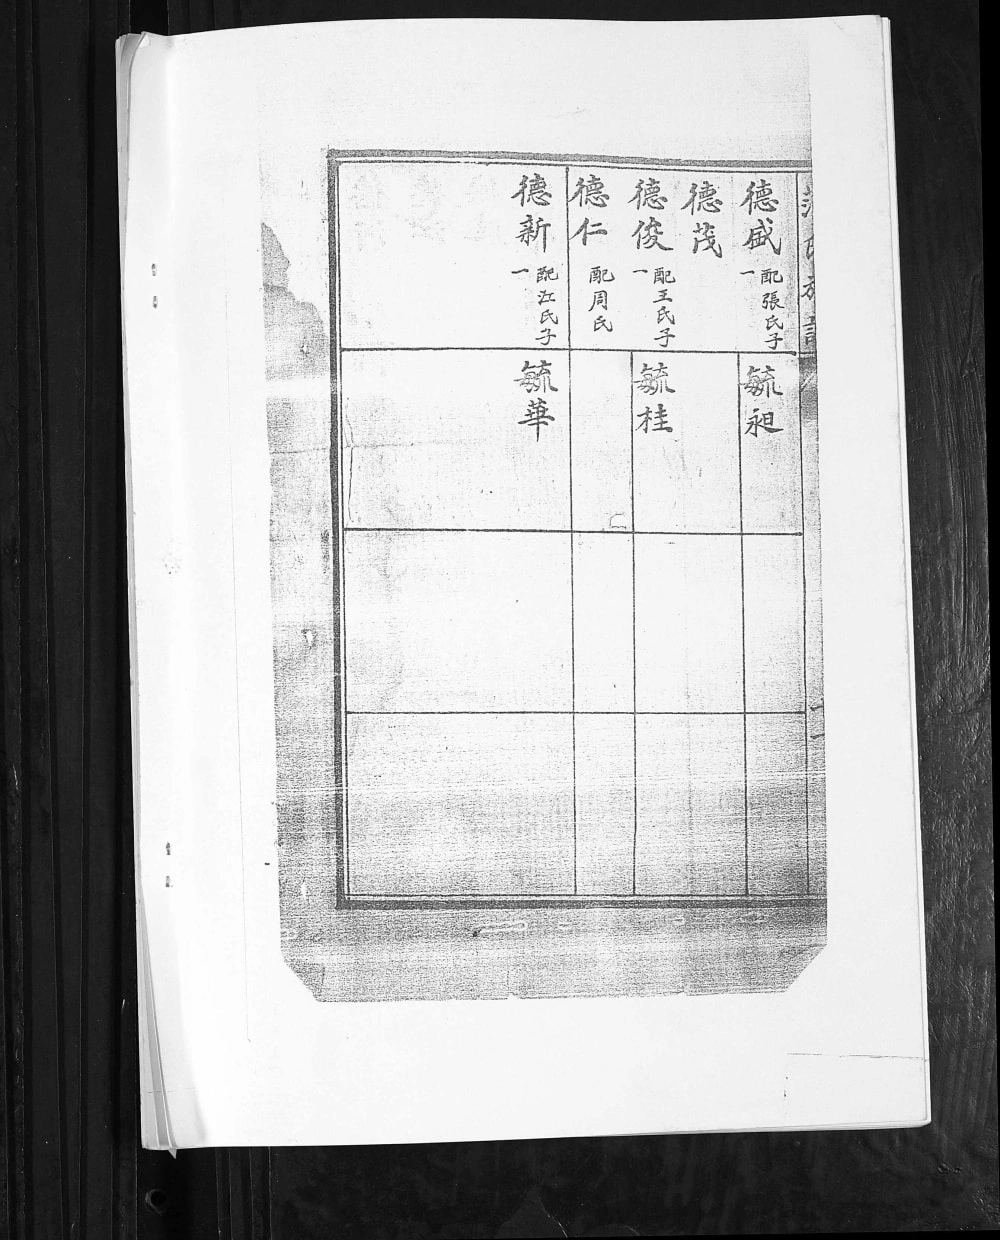 德盛 配張氏子一
德茂
德俊 配王氏子一
德仁 配周氏
德新 配江氏子一
毓昶
毓桂
毓華